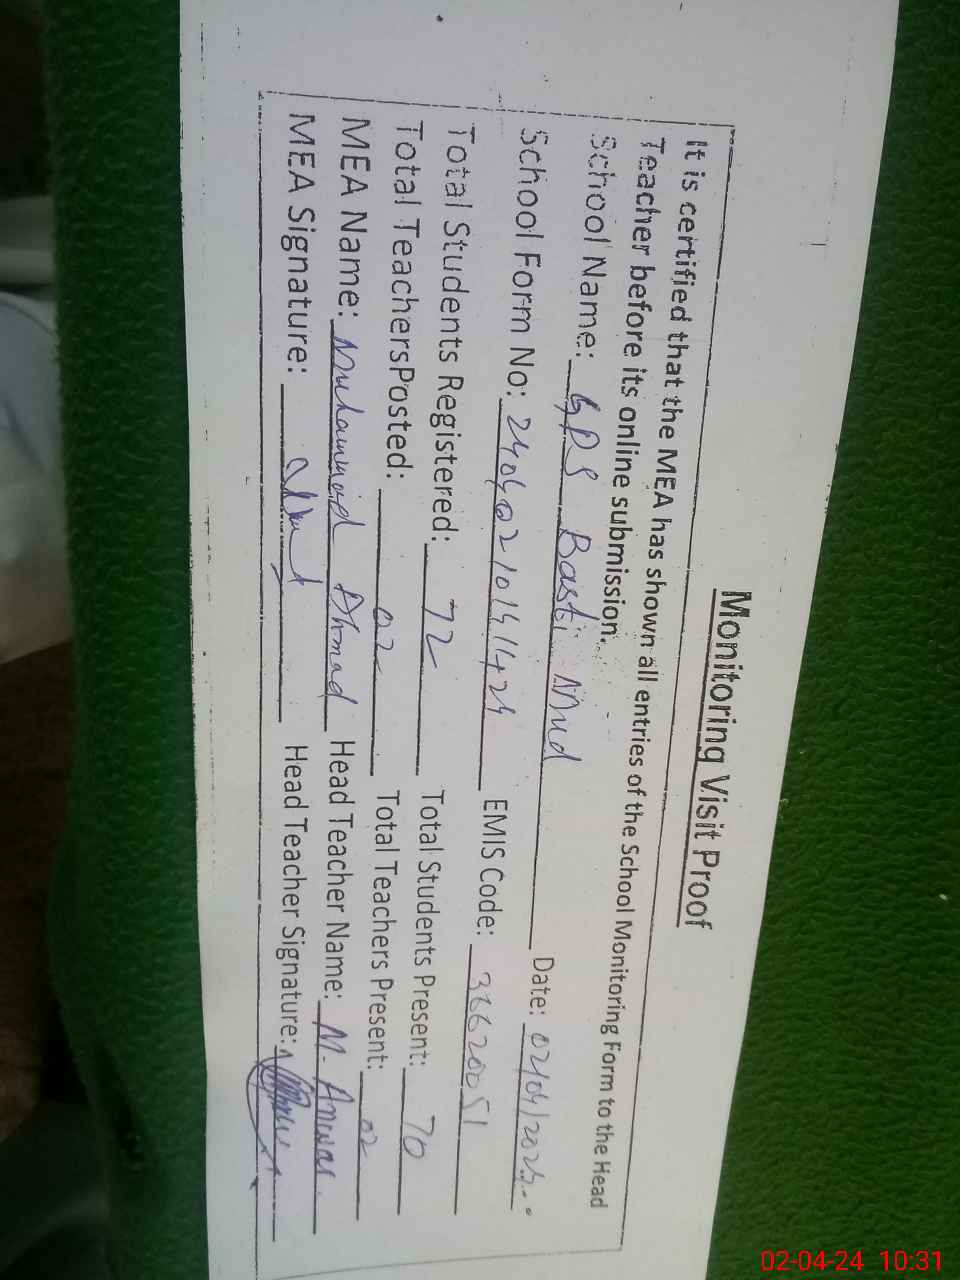 Monitoring Visit Proof
It is certified that the MEA has shown all entries of the School Monitoring Form to the Head
Teacher before its online submission.
School Name: GPS Basti Mud Date: 02/04/2024
School Form No: EMIS Code: 36620051
Total Students Registered: 72 Total Students Present: 70
Total Teachers Posted: 02 Total Teachers Present: 02
MEA Name: Muhammad Ahmad Head Teacher Name: M. Anwar
MEA Signature: Head Teacher Signature:
02-04-24 10:31